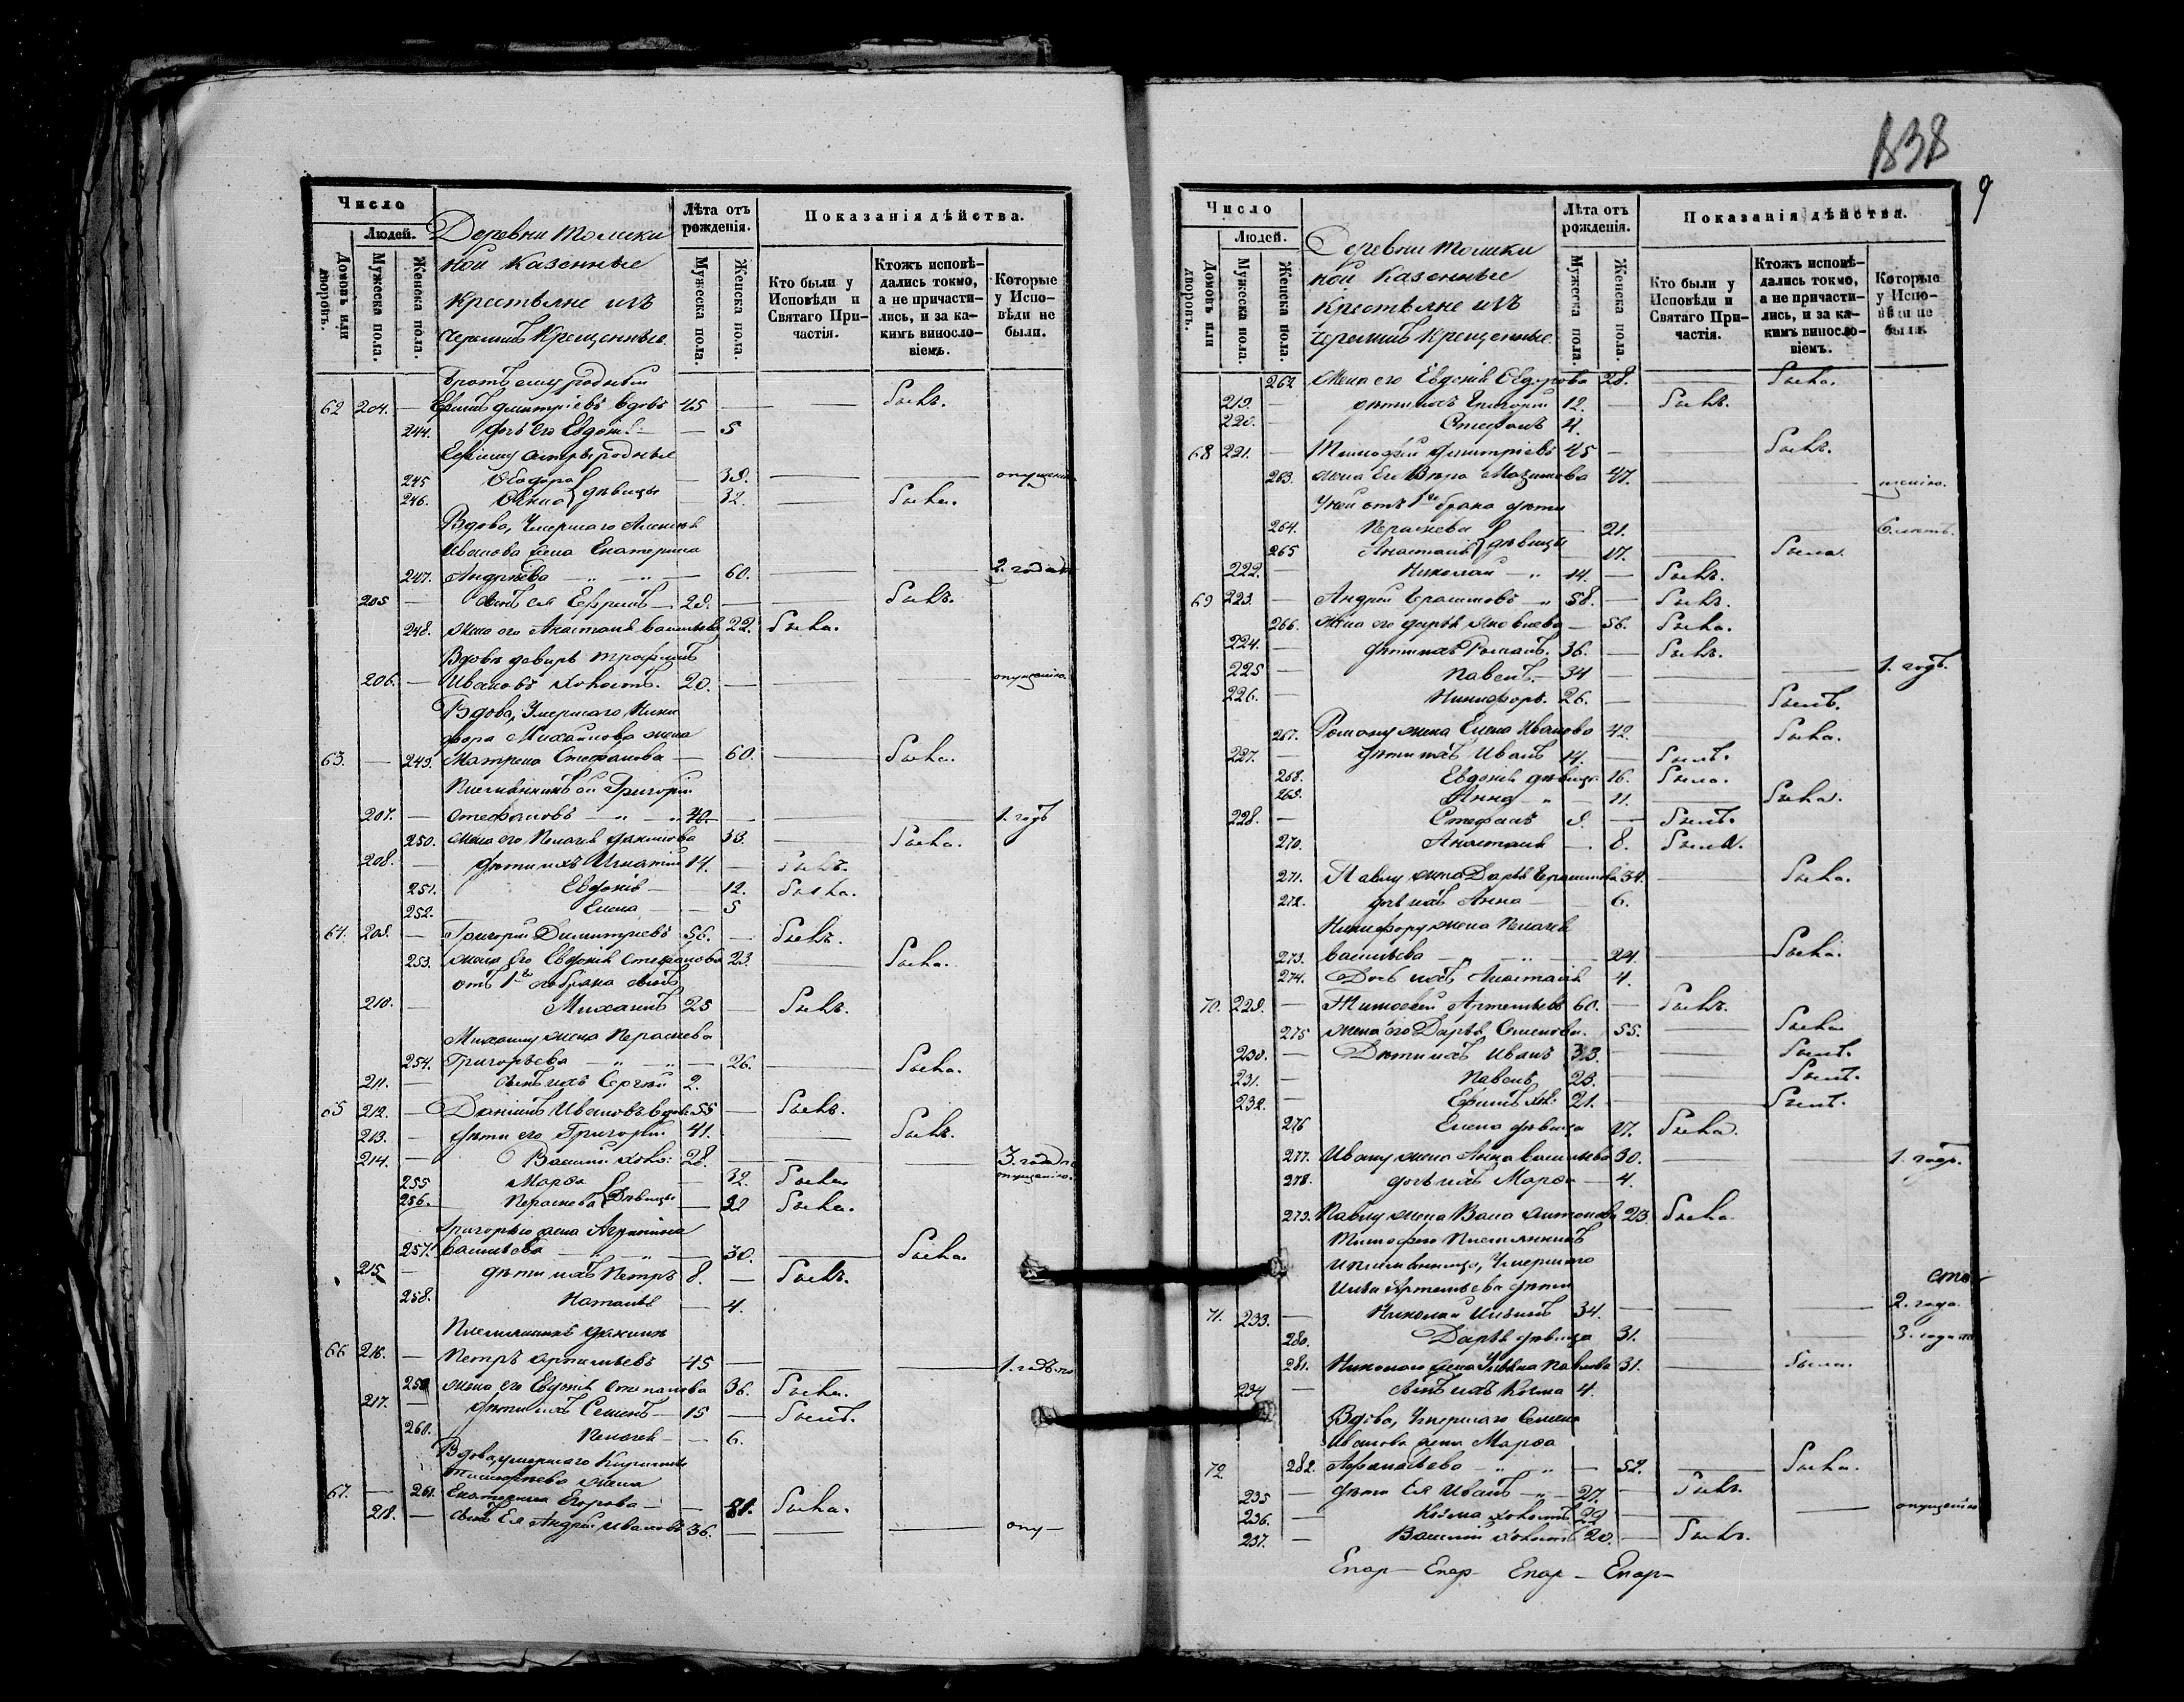 Число
Людей.
Домовъ или дворовъ.
Мужеска пола.
Женска пола.
Деревни
кой казенные
крестьяне изъ
крещенные
Лѣта отъ рожденія.
Мужеска пола.
Женска пола.
Показанія дѣйства.
Кто были у Исповѣди и Святаго Причастія.
Ктожъ исповѣдались токмо, а не причастились, и за какимъ винословіемъ.
Которые у Исповѣди не были.
братъ ему родный
62 204. — Дмитріевъ вдовъ 45 — — былъ.
244. дочь его — 5
сестры родные
245 Ѳедора — 39. — —
246. дѣвицы — 32. — была.
Вдова, Умершаго
Иванова жена Екатерина
247. Андреева — „ — „ — 60. — — 2. года
205 — сынъ ея Ефремъ — 28. — — былъ.
248. жена его Анастасія Васильева 22. была.
Вдовы деверь Трофимъ
206. — Ивановъ холостъ. 20. — — опущенію
Вдова, Умершаго Ники
фора Михайлова жена
63. — 249. Матрена Стефанова — 60. — была.
Племянникъ ей Григорій
207. — Стефановъ — „ — „ 40. — — 1. годъ
250. жена его Пелагія 33. — была.
208. — дѣти ихъ Игнатій 14. — былъ.
251. Евдокія — 12. была.
252. Елена — — 5
64. 209. — Григорій Димитріевъ 56. — былъ.
253. жена его Евдокія Стефанова 23. — была.
отъ 1го брака сынъ
210. — Михаилъ 25 — былъ.
Михаилу жена Параскева
254. Григорьева — „ — „ — 26. — была.
211. — сынъ ихъ Сергій 2.
65 212. — Даніилъ Ивановъ вдовъ 55 — былъ.
213. — дѣти его Григорій 41. — былъ.
214. — Василій холо: 28. — — 3. года по
255 Марѳа — 32. была опущенію.
256. Параскева дѣвицы — 22 была.
Григорью жена Агрипина
257. Васильева — „ — „ — 30. — была.
215 — дѣти ихъ Петръ 8. — былъ.
258. Наталія — 4.
Племянникъ
66 216. — Петръ 45 — — — 1. годъ по
259 жена его Евдокія Степанова 36. была.
217. — дѣти ихъ Семенъ — 15 — былъ.
260. Пелагея — — 6.
Вдова, умершаго
жена
67. — 261. Екатерина Егорова — — была.
218. — сынъ Ея Андрей Ивановъ 36. — — — опу—
838
9
Число
Людей.
Домовъ или дворовъ.
Мужеска пола.
Женска пола.
Деревни
кой казенные
крестьяне изъ
крещенные
Лѣта отъ рожденія.
Мужеска пола.
Женска пола.
Показанія дѣйства.
Кто были у Исповѣди и Святаго Причастія.
Ктожъ исповѣдались токмо, а не причастились, и за какимъ винословіемъ.
Которые у Исповѣди не были.
262 жена его Евдокія Ѳедорова 28. — была.
219. — дѣти ихъ Григорій 12. — былъ.
220. — Стефанъ 4.
68 221. — Тимофей Дмитріевъ 45 — былъ.
263. жена его Вѣра 47. — —
У ней отъ 1го брака дѣти
264. Параскева — 21. —
265 Анастасія дѣвицы 17. — была.
222. — Николай — „ 14. — былъ.
69 223. — Андрей — „ 58. — былъ.
266. жена его Дарья Яковлева — 56. была.
224. — дѣти ихъ Романъ. 36. — былъ.
225 — Павелъ — 34 — — — 1. годъ.
226. — Никифоръ. 26. — — былъ.
267. Роману жена Елена Иванова 42. — была.
227. — дѣти ихъ Иванъ 14. — былъ.
268. Евдокія дѣвица 16. была.
269. Анна „ — 11. — была.
228. — Стефанъ 9. — былъ.
270. Анастасія — 8. была.
271. Павлу жена Дарья 34. — была.
272. дочь ихъ Анна — — 6.
Никифору жена Пелагея
273. Васильева — „ — 24. — была.
274. Дочь ихъ Анастасія 4.
70. 229. — Тимофей Артемьевъ 60. — былъ.
275 жена его Дарья Семенова. 55. — была
230. — Дѣти ихъ Иванъ 33. — былъ.
231. — Павелъ 23. — былъ.
232. — Ефимъ хол. 21. — былъ.
276 Елена дѣвица 17. была.
277. Ивану жена Анна Васильева 30. — — 1. годъ.
278. дочь ихъ Марѳа — 4.
279. Павлу жена Васса Антонова 23. была
Тимофею Племянникъ
и племянница, Умершаго
Ильи Артемьева дѣти
71. 233. — Николай Ильинъ 34. — — — 2. года.
280. Дарья дѣвица 31. — — 3. года
281. Николаю жена Павлова 31. — была.
234 — сынъ ихъ Косма 4.
Вдова, Умершаго Семена
Иванова жена Марѳа
72. 282. Афанасьева — „ — „ — 52. — была.
235 — дѣти Ея Иванъ — „ — 27. — былъ.
236. — Козма холостъ. 22 — — — опущенію
237. — Василій холостъ 20. — былъ.
Епар — Епар — Епар — Епар —